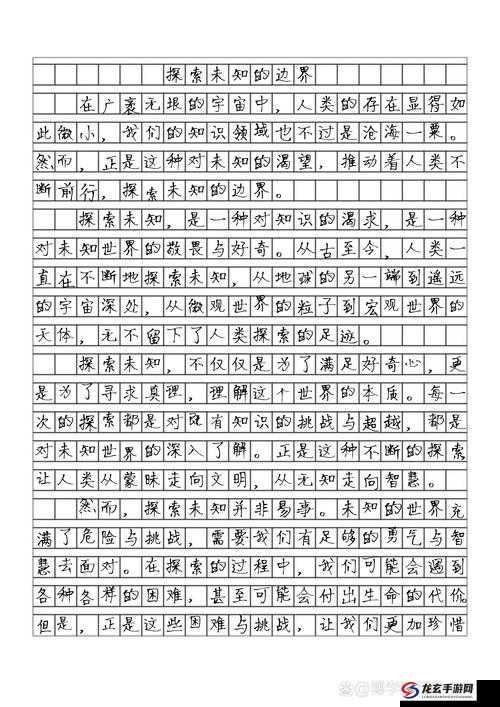 探索未知的边界
在广袤无垠的宇宙中，人类的存在显得如
此微小，我们的知识领域也不过是沧海一粟。
然而，正是这种对未知的渴望，推动着人类不
断前行，探索未知的边界。
探索未知，是一种对知识的渴求，是一种
对未知世界的敬畏与好奇。从古至今，人类一
直在不断地探索未知，从地球的另一端到遥远
的宇宙深处，从微观世界的粒子到宏观世界的
天体，无不留下了人类探索的足迹。
探索未知，不仅仅是为了满足好奇心，更
是为了寻求真理，理解这个世界的本质。每一
次的探索都是对既有知识的挑战与超越，都是
对未知世界的深入了解。正是这种不断的探索
让人类从蒙昧走向文明，从无知走向智慧。
然而，探索未知并非易事。未知的世界充
满了危险与挑战，需要我们有足够的勇气与智
慧去面对。在探索的过程中，我们可能会遇到
各种各样的困难，甚至可能会付出生命的代价。
但是，正是这些困难与挑战，让我们更加珍惜
龙玄手游网